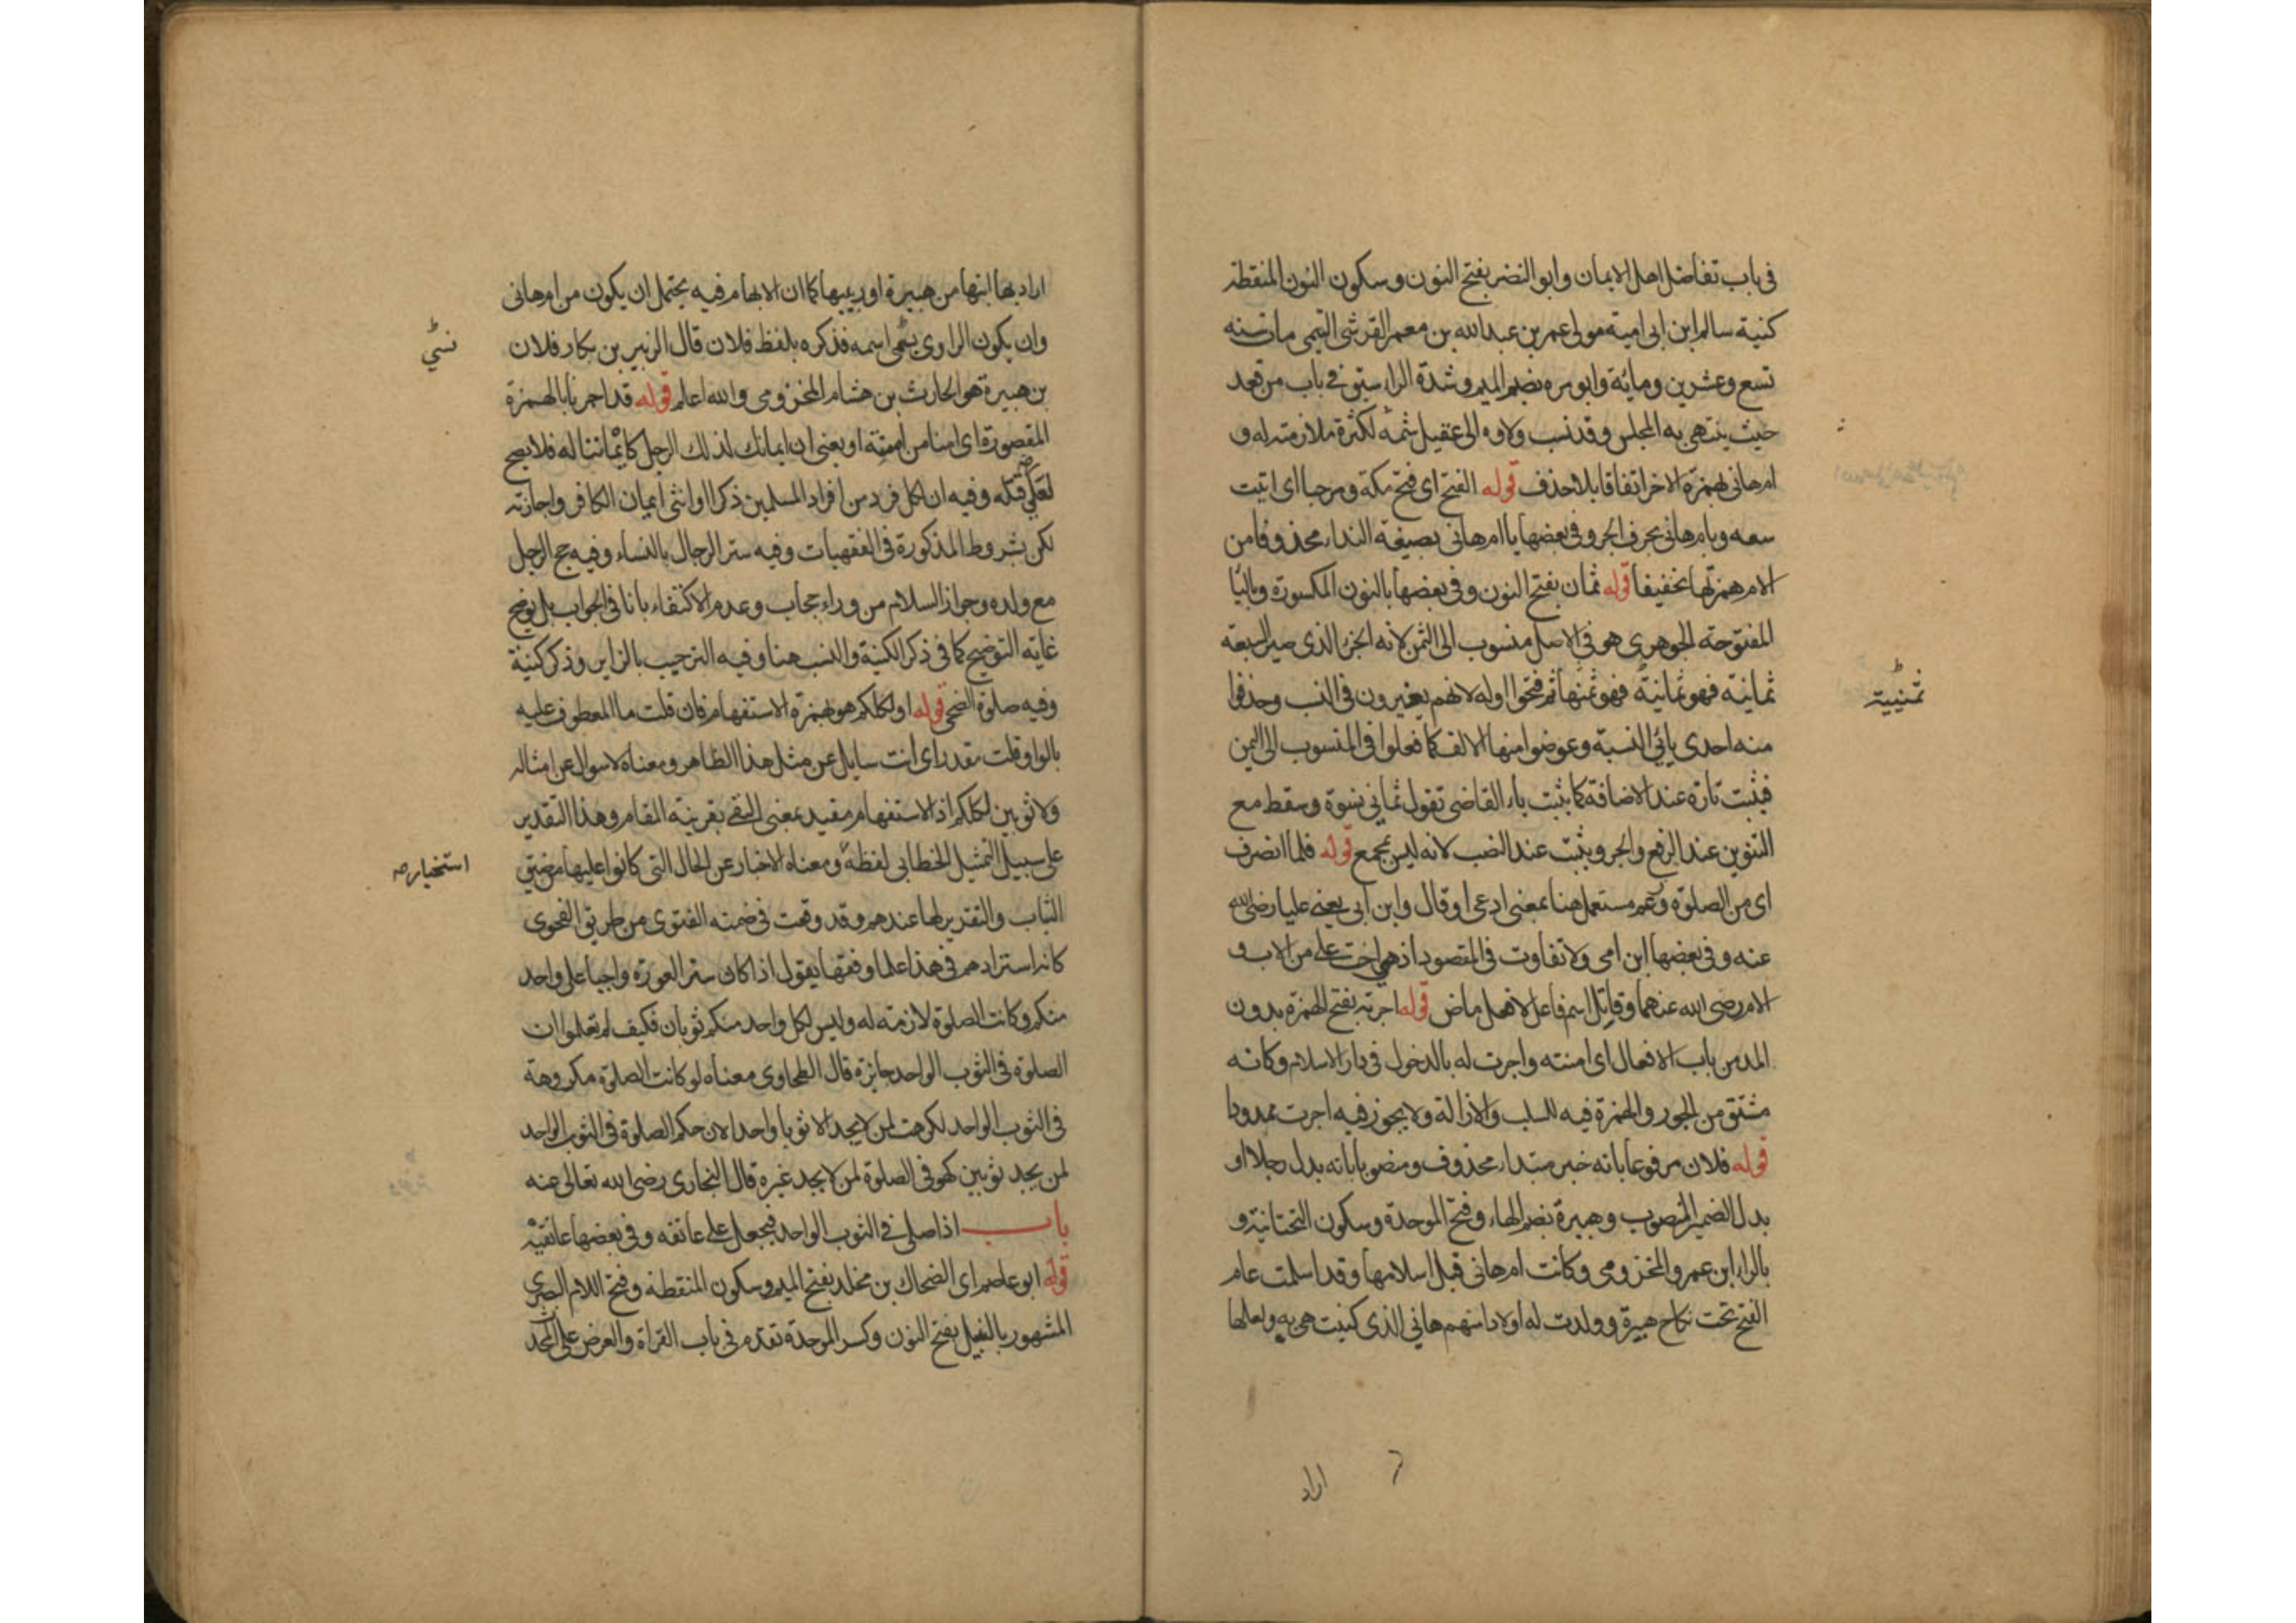 فى باب تفاضل اهل الايمان وابو النضر بفتح النون وسكون النون المنقطة
كنية سالم ابن ابى امية مولى عمر بن عبد الله بن معمر القرشى التيمى مات سنه
تسع وعشرين ومائة وابو مره بضم الميم وشدة الراء سبق فى باب من قعد
حيث ينتهى به المجلس وقد نسب ولاوه الى عقيل ثمه لكثرة ملازمته له و
ام هانى بهمزة الاخر اتفاقا بلا حذف قوله الفتح اى فتح مكة ومرحبا اى اتيت
سعه وبام هانى بحرف الجر وفى بعضها يا ام هانى بصيغة النداء محذوفا من
الام همزتها تخفيفا قوله ثمان بفتح النون وفى بعضها بالنون المكسورة وباليا
المفتوحة الجوهرى هو فى الاصل منسوب الى الثمن لانه الجزء الذى صير السبعة
ثمانية فهو ثمانية فهو ثمنها ثم فتحوا اوله لانهم يغيرون فى النسب وحذفوا
ثمنيية
منه احدى يائى النسبة وعوضوا منها الالف كما فعلوا فى المنسوب الى اليمن
فيثبت تارة عند الاضافة كما يثبت ياء القاضى تقول ثمانى نسوة وسقط مع
التنوين عند الرفع والجر ويثبت عند النصب لانه ليس بجمع قوله فلما انصرف
اى من الصلوة وزعم مستعمل هنا بمعنى ادعى او قال وابن ابى يعنى عليا رضى الله
عنه وفى بعضها ابن امى ولا تفاوت فى المقصود اذ هى اخت على من الاب و
الام رضى الله عنهما وقاتل اسم فاعل لا فعل ماض قوله اجرته بفتح الهمزة بدون
المد من باب الافعال اى امنته واجرت له بالدخول فى دار الاسلام وكانه
مشتق من الجور والهمزة فيه للسلب والازالة ولا يجوز فيه اجرت ممدودا
قوله فلان مرفوعا بانه خبر مبتداء محذوف ومنصوبا بانه بدل رجلا او
بدل الضمير المنصوب وهبيرة بضم الهاء وفتح الموحدة وسكون التحتانية و
بالراء ابن عمرو المخزومى وكانت ام هانى قبل اسلامها وقد اسلمت عام
الفتح تحت نكاح هبيرة وولدت له اولادا منهم هانى الذى كنيت هى به ولعلها
اراد
اراد بها ابنها من هبيرة او ربيبها كما ان الابهام فيه يحتمل ان يكون من ام هانى
وان يكون الراوى نسى اسمه فذكره بلفظ فلان قال الزبير بن بكار فلان
نسي
بن هبيرة هو الحارث بن هشام المخزومى والله اعلم قوله قد اجرنا بالهمزة
المقصورة اى امنا من امنته او يعنى ان ايمانك لذلك الرجل كايماننا له فلا يصح
لعلي قتله وفيه ان لكل فرد من افراد المسلمين ذكرا او انثى ايمان الكافر واجازته
لكن بشروط المذكورة فى الفقهيات وفيه ستر الرجال بالنساء وفيه حج الرجل
مع ولده وجواز السلام من وراء حجاب وعدم الاكتفاء بانا فى الجواب بل يوضح
غاية التوضيح كما فى ذكر الكنية والنسب هنا وفيه الترحيب بالزاير وذكر كنية
وفيه صلوة الضحى قوله اولكلكم هو بهمزة الاستفهام فان قلت ما المعطوف عليه
بالواو قلت مقدر اى انت سايل عن مثل هذا الظاهر ومعناه لا سوال عن امثاله
ولا ثوبين لكلكم اذ الاستفهام مفيد بمعنى النفى بقرينة المقام وهذا التقدير
على سبيل التمثيل الخطابى لفظه ومعناه الاخبار عن الحال التى كانوا عليها من ضيق
استخبار صه
الثياب والتقدير لها عندهم وقد وقعت فى ضمنه الفتوى من طريق الفحوى
كانه استزادهم فى هذا علما وفقها يقول اذا كان ستر العورة واجبا على واحد
منكم وكانت الصلوة لازمة له وليس لكل واحد منكم ثوبان فكيف لم تعلموا ان
الصلوة فى الثوب الواحد جائزة قال الطحاوى معناه لو كانت الصلوة مكروهة
فى الثوب الواحد لكرهت لمن لا يجد الا ثوبا واحدا لان حكم الصلوة فى الثوب الواحد
لمن يجد ثوبين كهو فى الصلوة لمن لا يجد غيره قال البخارى رضى الله تعالى عنه
باب اذا صلى فى الثوب الواحد فيجعل على عاتقه وفى بعضها عاتقيه
قوله ابو عاصم اى الضحاك بن مخلد بفتح الميم وسكون المنقطة وفتح اللام البصرى
المشهور بالنبيل بفتح النون وكسر الموحدة تقدم فى باب القراة والعرض على المحدث